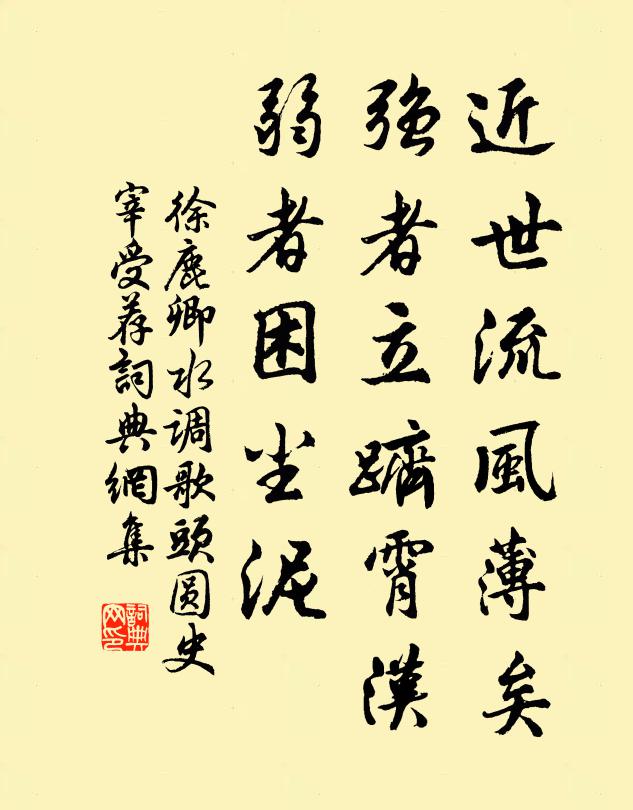 近世流風薄矣
強者立躋霄漢
弱者困尘泥
徐鹿卿水调歌頭圆史
宰受荐詞典網集
詞典网印